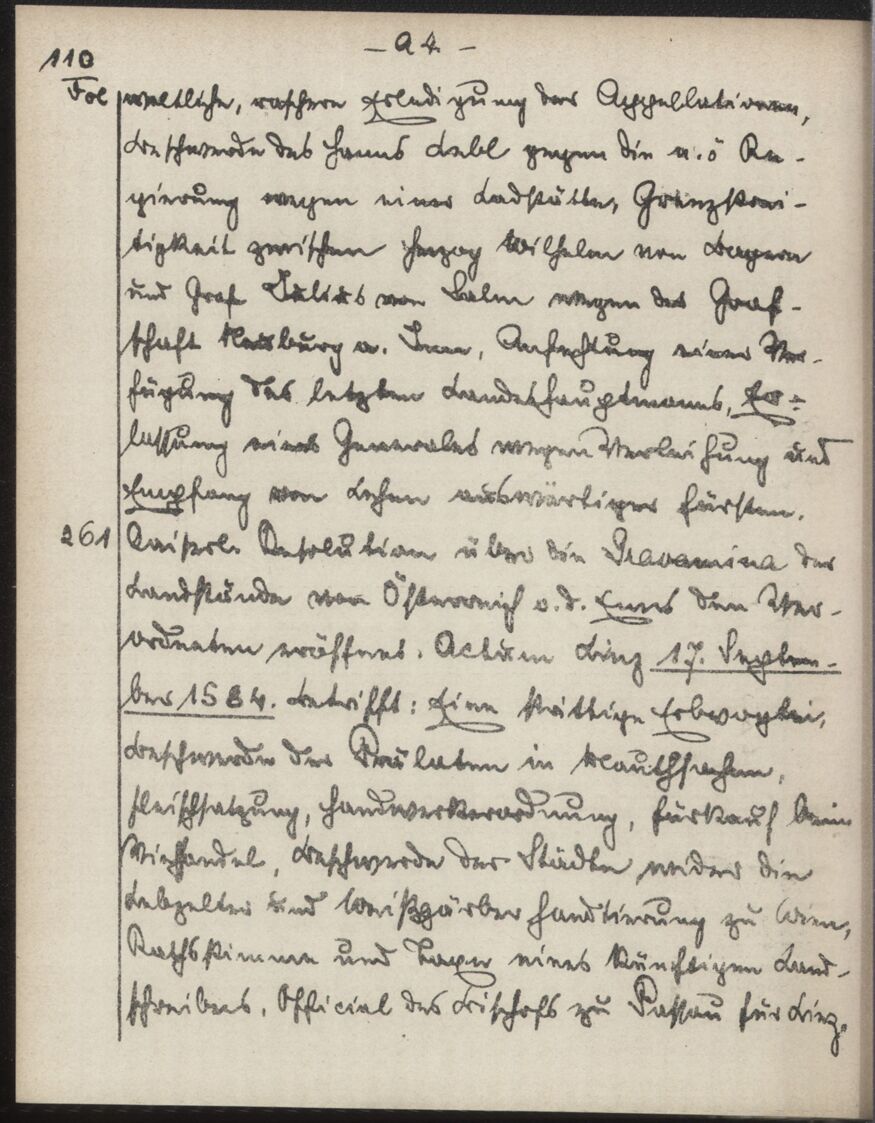 110
- A 4 -
Fol weltliche, raschere Erledigung der Appellationen,
Beschwerde des Hanns Lebl gegen die n. ö Re-
gierung wegen einer Ladstätte, Grenzstrei-
tigkeit zwischen Herzog Wilhelm von Bayern
und Graf Julius von Salm wegen der Graf-
schaft Neuburg a. Inn, Anfechtung einer Ver-
fügung des letzten Landeshauptmanns, Er-
lassung eines Generales wegen Verleihung und
Empfang von Lehen auswärtiger Fürsten.
261 Kaiserl. Resolution über die Gravamina der
Landstände von Österreich o. d. Enns den Ver-
ordneten eröffnet. Actum Linz 17. Septem-
ber 1584. Betrifft: Eine strittige Erbvogtei,
Beschwerde der Prälaten in Mauthsachen,
Fleischsatzung, Handwerkerordnung, Fürkauf beim
Viehhandel, Beschwerde der Städte wider die
Lebzelter und Weißgärber Handtierung zu Wien,
Rathsstimme und Taxe eines künftigen Land-
schreibers, Official des Bischofs zu Passau für Linz.